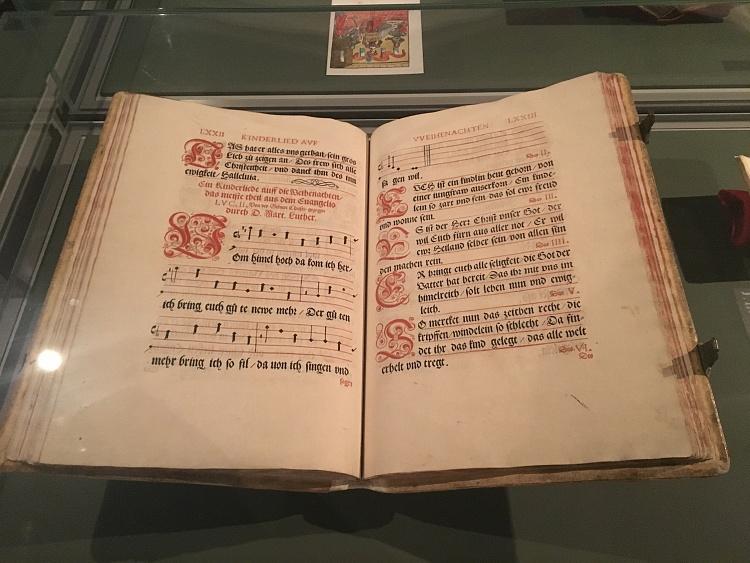 LXXII KINDERLIED AVF
DAS hat er alles vns gethan / sein gros
Lieb zu zeigen an / Des frew sich alle
Christenheit / vnd danck ihm des inn
ewigkeit / Halleluia.
Ein Kinderliede auff die Weihenachten /
das meiste theil aus dem Euangelio
LVC. II. Von der Geburt Christi gezogen
durch D. Mart. Luther.
VOm himel hoch da kom ich her /
ich bring euch gůte newe mehr / Der gůten
mehr bring ich so fil / da uon ich singen vnd
sagen
VVEIHENACHTEN LXXIII
sagen wil.
Das II.
EVCH ist ein kindlin heut geborn / von
einer iungfraw auserkorn / Ein kinde-
lein so zart vnd fein / das sol ewr freud
vnd wonne sein.
Das III.
ES ist der Herr Christ vnser Got / der
wil Euch fürn aus aller not / Er wil
ewr Heiland selber sein / von allen sün
den machen rein.
Das IIII.
ER bringt euch alle seligkeit / die Got der
Vatter hat bereit / Das ihr mit vns im
himelreich / solt leben nun vnd ewig-
leich.
Das V.
SO mercket nun das zeichen recht / die
krippffen / windelein so schlecht / Da fin-
det ihr das kind gelegt / das alle welt
erhelt vnd tregt.
Das VI.
Des